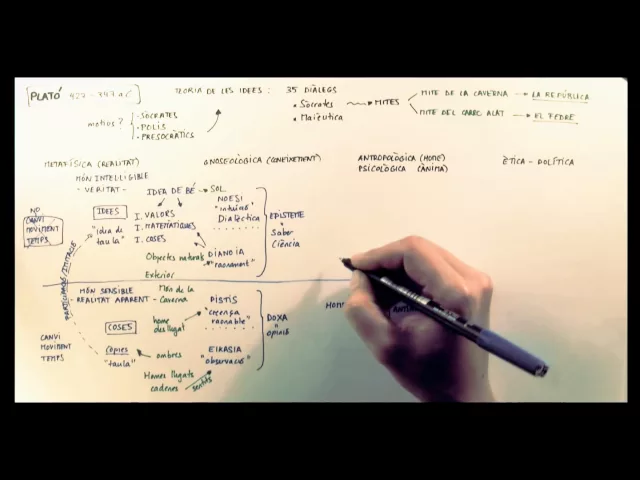 PLATÓ 427 - 347 a.C
TEORIA DE LES IDEES :
35 DIÀLEGS
• Sòcrates
• Maièutica
MITES
MITE DE LA CAVERNA → LA REPÚBLICA
MITE DEL CARRO ALAT → EL FEDRE
motius?
• SÒCRATES
• POLIS
• PRESOCRÀTICS
METAFÍSICA (REALITAT)
GNOSEOLÒGICA (CONEIXEMENT)
ANTROPOLÒGICA (HOME)
PSICOLÒGICA (ÀNIMA)
ÈTICA - POLÍTICA
MÓN INTELLIGIBLE
- VERITAT -
IDEA DE BÉ → SOL
NO
CANVI
MOVIMENT
TEMPS
IDEES
"idea de
taula"
I. VALORS
I. MATEMÀTIQUES
I. COSES
NOESI
Dialèctica
EPISTEME
Saber
Ciència
Objectes naturals
DIANOIA
"raonament"
Exterior
PARTICIPACIÓ/IMITACIÓ
MÓN SENSIBLE
- REALITAT APARENT -
Món de la
Caverna
PISTIS
"creença
raonable"
DOXA
opinió
COSES
home
deslligat
CANVI
MOVIMENT
TEMPS
Còpies
"taula"
ombres
EIKASIA
"observació"
Homes lligats
cadenes
sentits